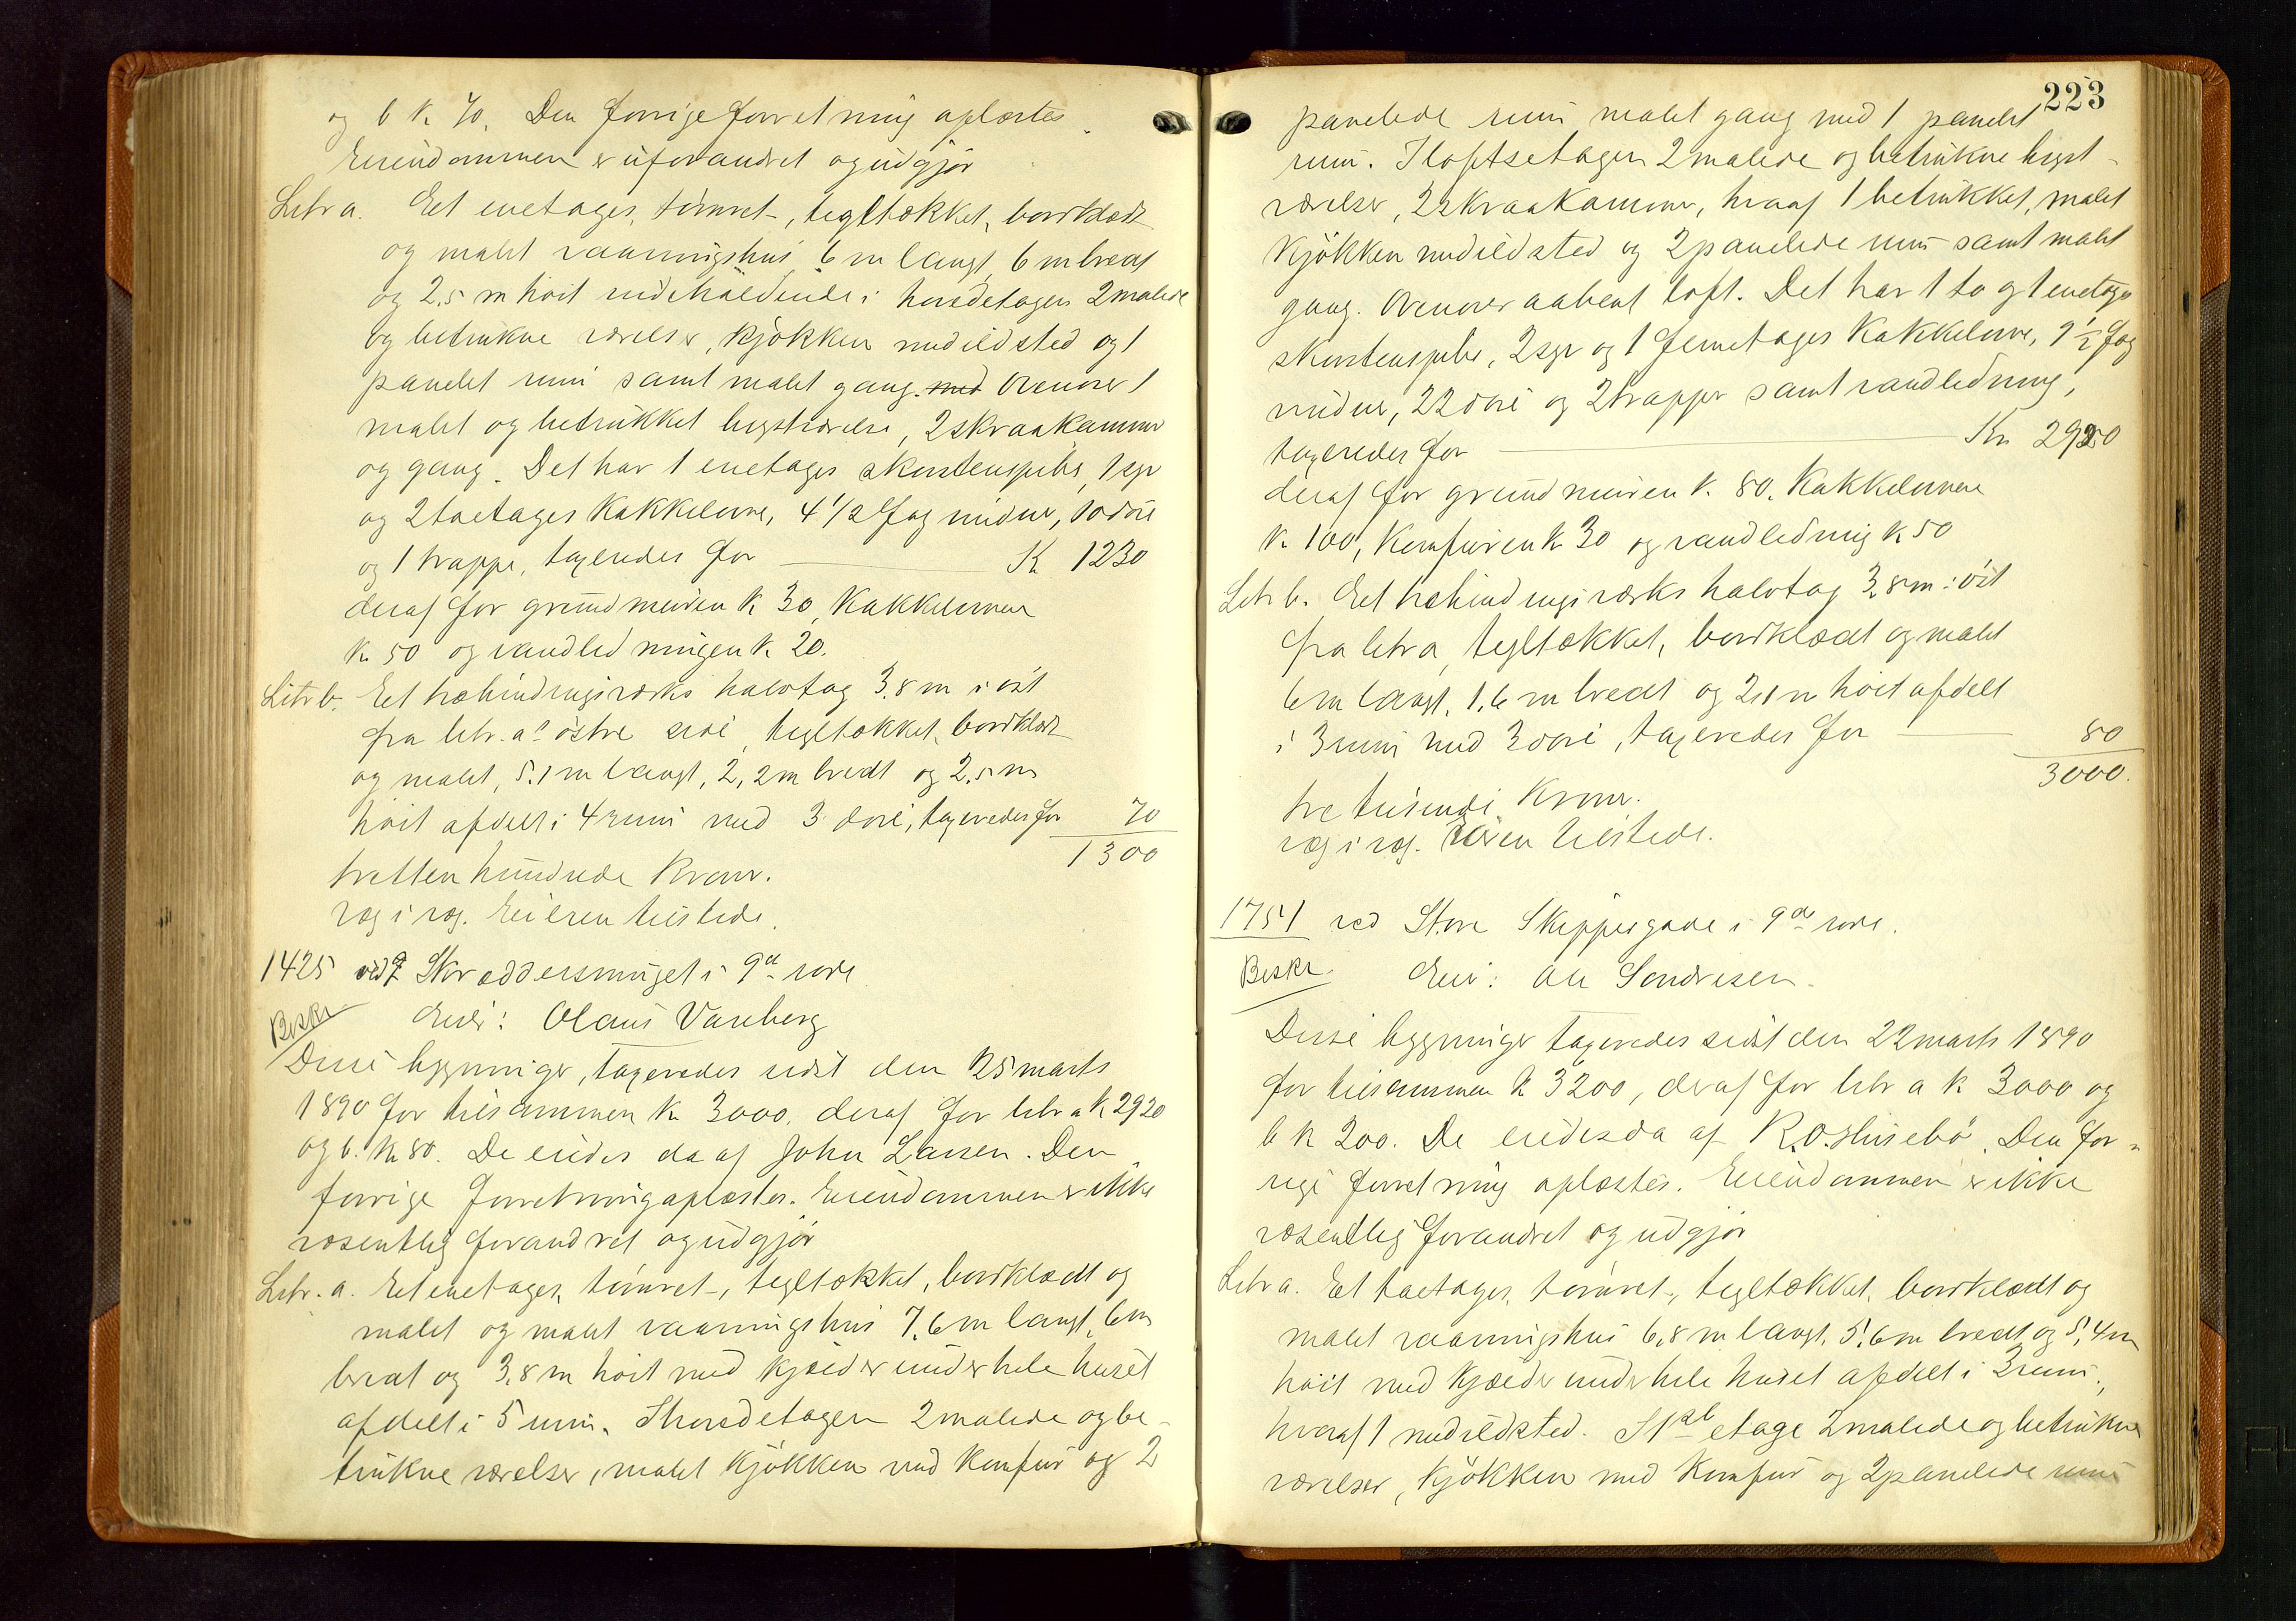 og b K. 70. Den forrige forretning oplæstes.
Eiendommen er uforandret og udgjør
Litr a. Et enetages, tømret-, tegltækket, bordklædt
og malet vaaningshus 6 m langt, 6 m bredt
og 2.5 m høit indeholdende i hovedetagen 2 malede
og betrukne værelser, kjøkken med ildsted og 1
panelet rum samt malet gang. med Ovenover 1
malet og betrukket kvistværelse, 2 skraakammer
og gang. Det har 1 enetages skorstenspibe, 1 syv
og 2 toetages kakkelovne, 4 1/2 fag vinduer, 10 døre
og 1 trappe, taxeredes for K 1230
deraf for grundmuren K 30, Kakkelovnen
K. 50 og vandledningen K. 20.
Litr b. Et udbindingsværks halvtag 3.8 m i øst
fra litr. a's østre side, tegltækket, bordklædt
og malet, 5.1 m langt, 2,2 m bredt og 2.5 m
høit afdelt i 4 rum med 3 døre, taxeredes for 70
1300
tretten hundrede Kroner.
væg i væg. Eieren tilstede.
1425 ved Skræddersmuget i 9de rode
Beskr. Eier: Olaus Vareberg
Disse bygninger, taxeredes sidst den 25 marts
1890 for tilsammen K. 3000. deraf for litr a K. 2920
og b. K. 80. De eiedes da af John Larsen. Den
forrige forretning oplæstes. Eiendommen er ikke
væsentlig forandret og udgjør
Litr. a. Et enetages, tømret-, tegltækket, bordklædt og
malet og malet vaaningshus 7,6 m langt, 6 m
bredt og 3,8 m høit med kjælder under hele huset
afdelt i 5 rum. I hovedetagen 2 malede og be-
trukne værelser, malet kjøkken med komfur og 2
223
panelede rum malet gang med 1 panelet
rum. I loftsetagen 2 malede og betrukne kvist-
værelser, 2 skraakammer, hvoraf 1 betrukket, malet
kjøkken med ildsted og 2 panelede rum samt malet
gang. Ovenover aabent loft. Det har 1 to og 1 enetages
skorstenspibe, 2 syv og 1 femetages kakkelovne, 9 1/2 fag
vinduer, 22 døre og 2 trapper samt vandledning,
taxeredes for Kr 2920
deraf for grundmuren K. 80. Kakkelovnene
K. 100, Komfuren K 30 og vandledning K 50
Litr b. Et udbindingsværks halvtag 3,8 m i øst
fra litr a, tegltækket, bordklædt og malet
6 m langt, 1,6 m bredt og 2,1 m høit afdelt
i 3 rum med 3 døre, taxeredes for 80
3000.
tre tusende Kroner.
væg i væg. Eieren tilstede.
1751 ved Store Skippergade i 9de rode.
Beskr. Eier: Ole Sondresen.
Disse bygninger taxeredes sidst den 22 marts 1890
for tilsammen K 3200, deraf for litr a K 3000 og
b K 200. De eiedes da af R.O. Husebø. Den for-
rige forretning oplæstes. Eiendommen er ikke
væsentlig forandret og udgjør
Litr a. Et toetages, tømret-, tegltækket, bordklædt og
malet vaaningshus 6,8 m langt, 5,6 m bredt og 5,4 m
høit med kjælder under hele huset afdelt i 3 rum,
hvoraf 1 med ildsted. I 1ste etage 2 malede og betrukne
værelser, kjøkken med komfur og 2 panelede rum